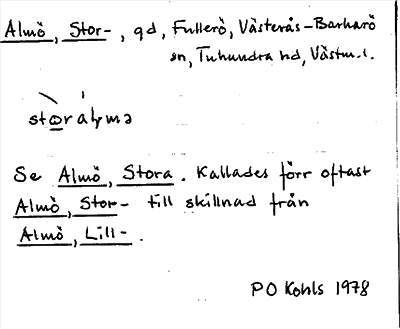 Almö, Stor-, gd, Fullerö, Västerås-Barkarö
sn, Tuhundra hd, Västm.l.
stòrálmə
Se Almö, Stora. Kallades förr oftast
Almö, Stor- till skillnad från
Almö, Lill-.
PO Kohls 1978